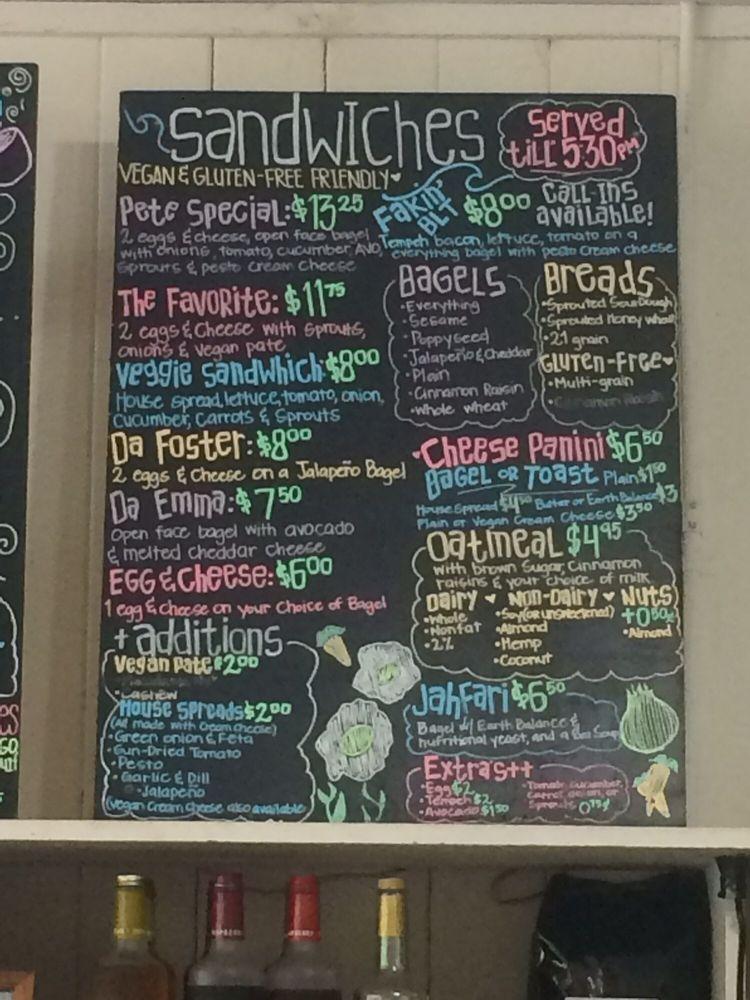 Sandwiches
Served
till 5:30pm
VEGAN & GLUTEN-FREE FRIENDLY
Pete Special: $13.25
2 eggs & cheese, open face bagel
with onions, tomato, cucumber, AVO,
sprouts & pesto cream cheese
Fakin'
BLT
$8.00
Call-ins
available!
Tempeh bacon, lettuce, tomato on a
everything bagel with pesto cream cheese
The Favorite: $11.75
2 eggs & cheese with sprouts,
onions & vegan pate
Veggie Sandwhich: $8.00
House spread, lettuce, tomato, onion,
cucumber, carrots & sprouts
Da Foster: $8.00
2 eggs & cheese on a Jalapeño Bagel
Da Emma: $7.50
open face bagel with avocado
& melted cheddar cheese
Egg & Cheese: $6.00
1 egg & cheese on your choice of Bagel
Bagels
• Everything
• Sesame
• Poppyseed
• Jalapeño & Cheddar
• Plain
• Cinnamon Raisin
• Whole wheat
Breads
• Sprouted Sourdough
• Sprouted Honey wheat
• 21 grain
Gluten-Free
• Multi-grain
Cheese Panini $6.50
Bagel or Toast Plain $1.50
House Spread $4.50 Butter or Earth Balance $3
Plain or Vegan Cream Cheese $3.50
Oatmeal $4.95
with brown sugar, cinnamon
raisins & your choice of milk
Dairy Non-Dairy Nuts
• Whole • Soy (or unsweetened) +0.50
• Nonfat • Almond • Almond
• 2% • Hemp
• Coconut
+additions
Vegan Pate $2.00
• Cashew
House Spreads $2.00
(All made with Cream Cheese)
• Green onion & Feta
• Sun-Dried Tomato
• Pesto
• Garlic & Dill
• Jalapeño
(Vegan Cream Cheese also available
Jahfari $6.50
Bagel w/ Earth Balance &
nutritional yeast, and a Soup
Extras++
• Egg $2 • Tomato, cucumber,
• Tempeh $2 carrot, onion, or
• Avocado $1.50 Sprouts 0.75¢